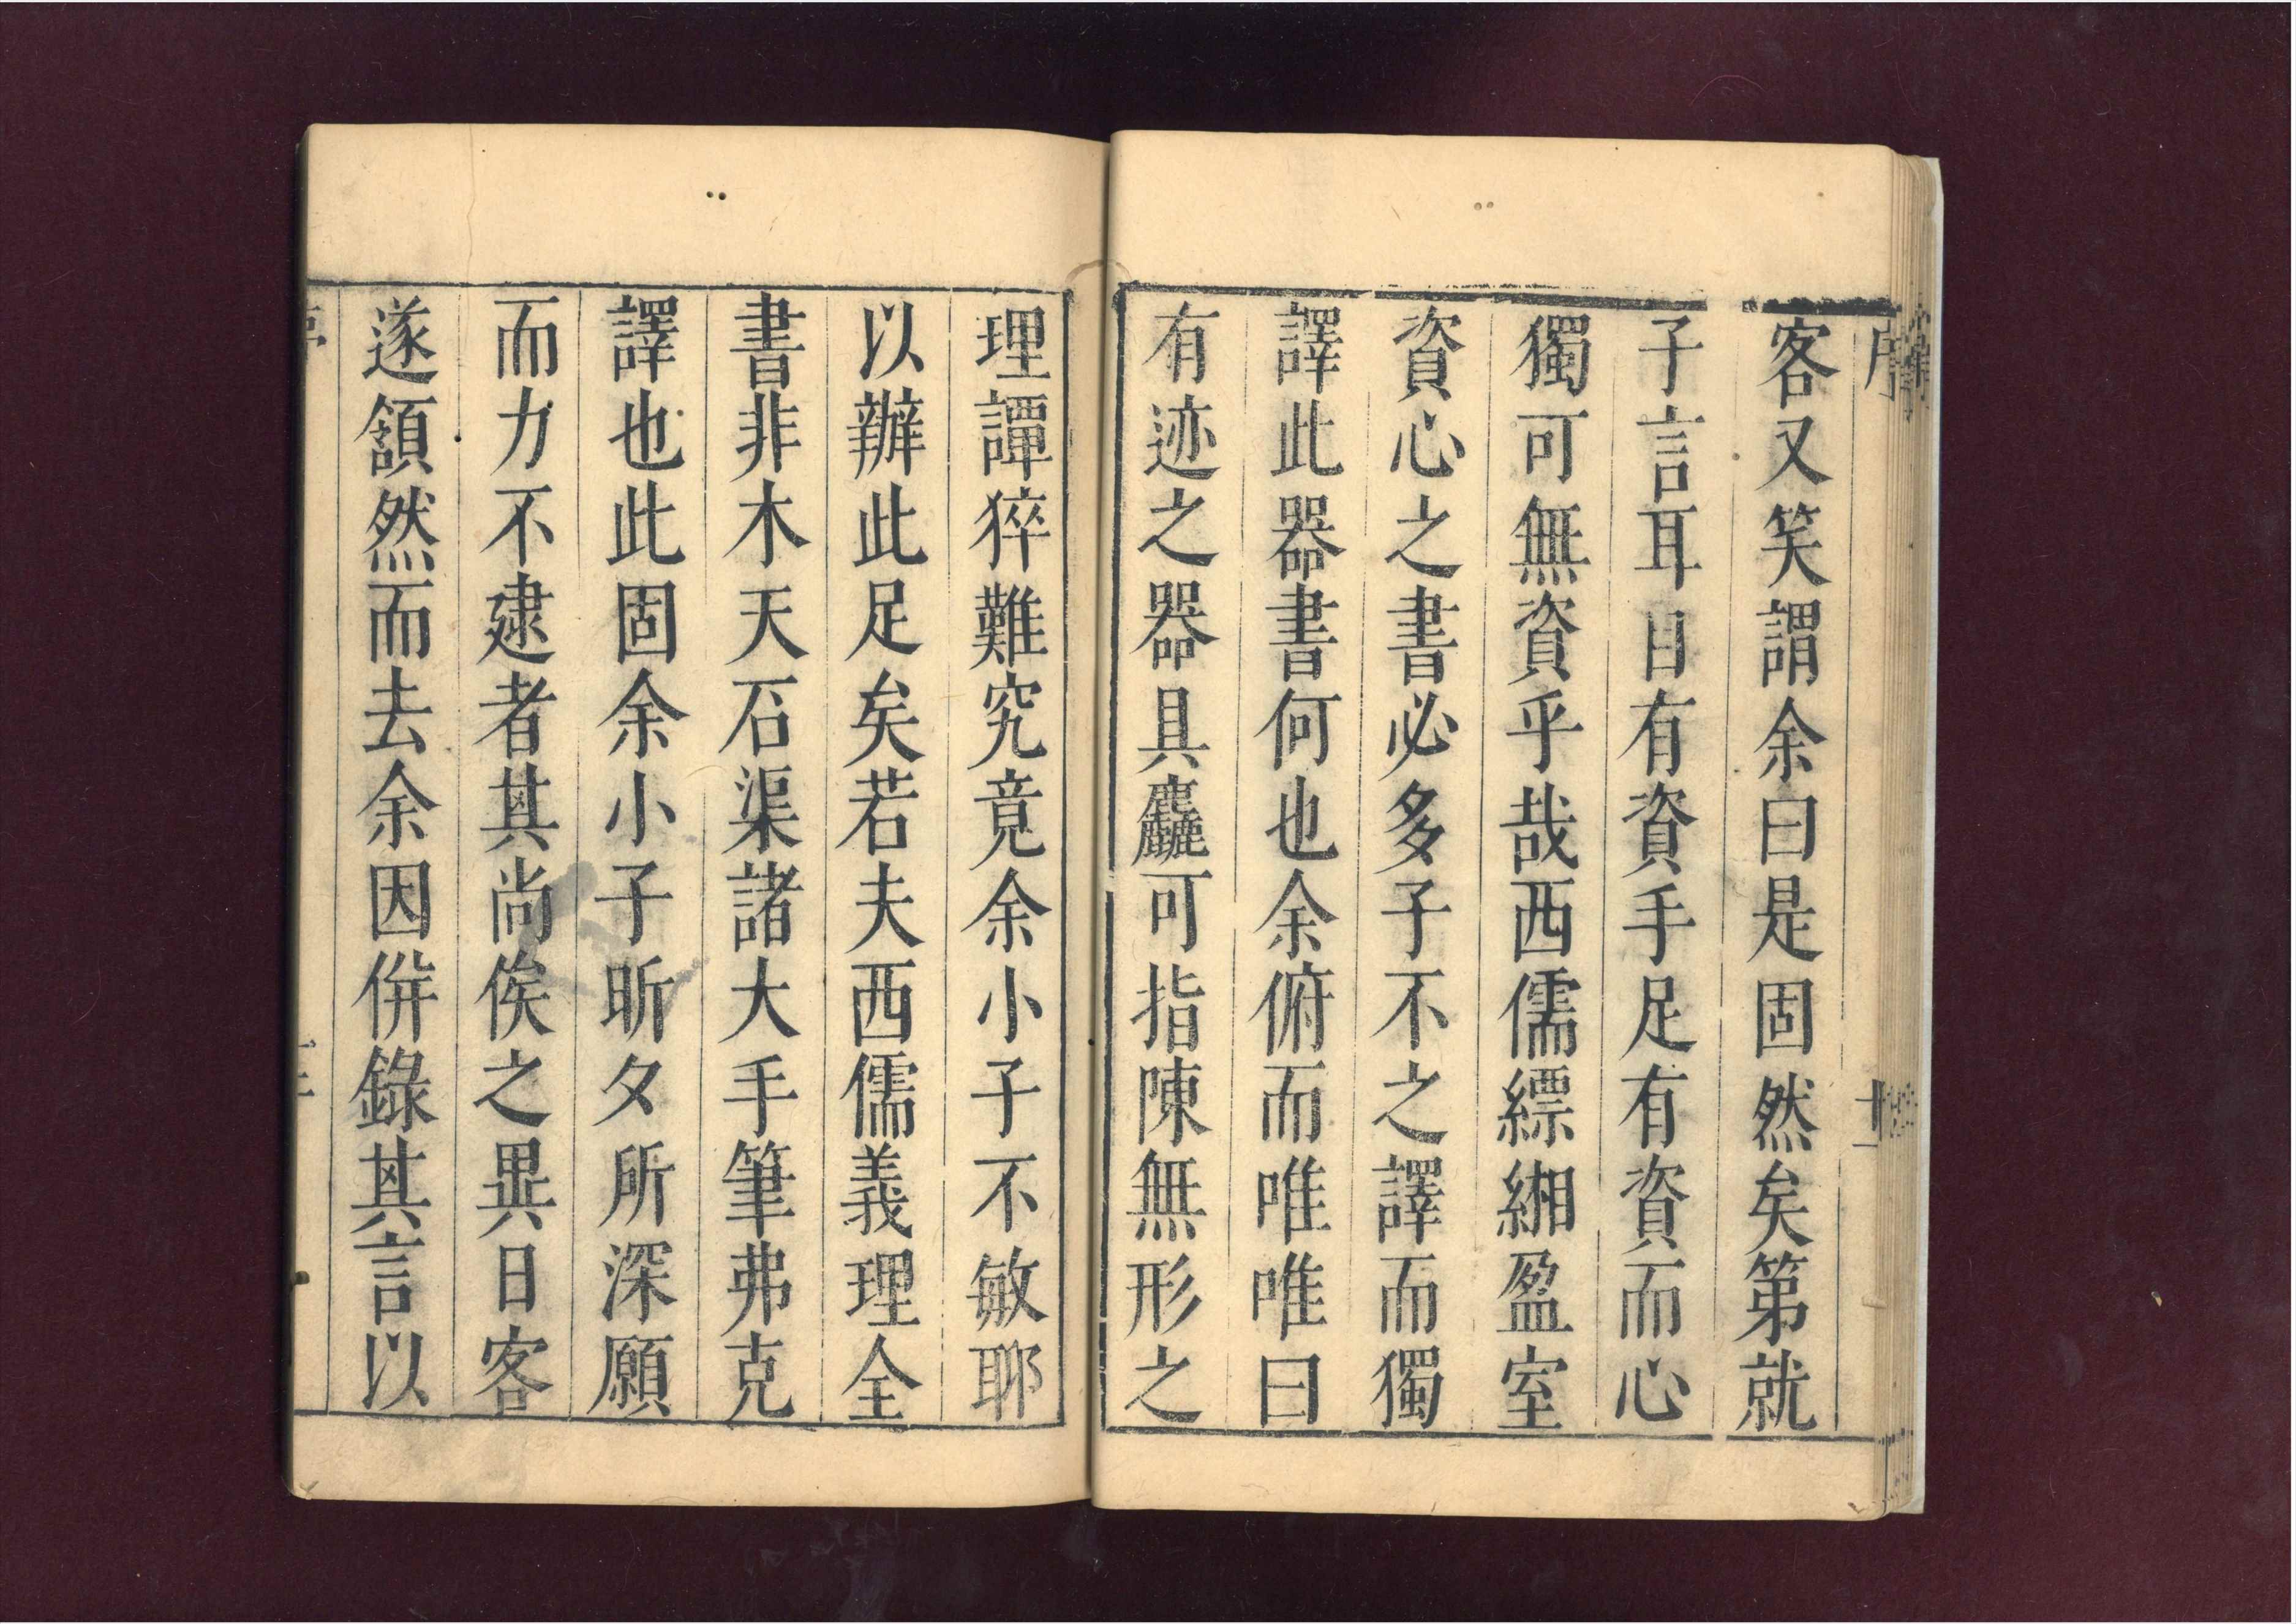 序
十一
客又笑謂余曰是固然矣第就
子言耳目有資手足有資而心
獨可無資乎哉西儒縹緗盈室
資心之書必多子不之譯而獨
譯此器書何也余俯而唯唯曰
有迹之器具麤可指陳無形之
理譚猝難究竟余小子不敏耶
以辦此足矣若夫西儒義理全
書非木天石渠諸大手筆弗克
譯也此固余小子昕夕所深願
而力不逮者其尚俟之異日客
遂頷然而去余因併錄其言以